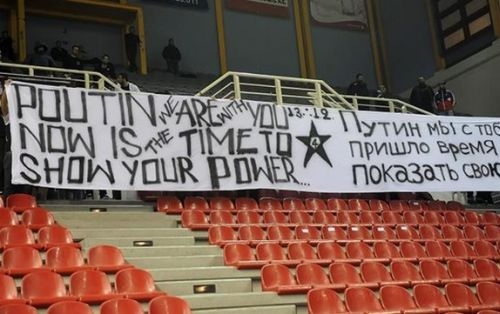 POUTIN WE ARE WITH YOU
NOW IS THE TIME TO
SHOW YOUR POWER...
13:12
4
Путин мы с тоб
пришло время
показать свою